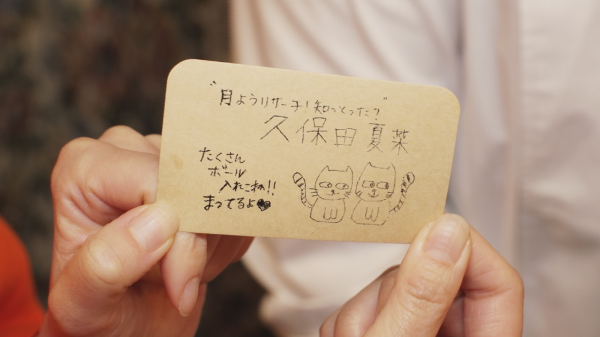 "月ようリサーチ!知っとった?"
久保田夏菜
たくさん
ボール
入れこね!!
まってるよ♥